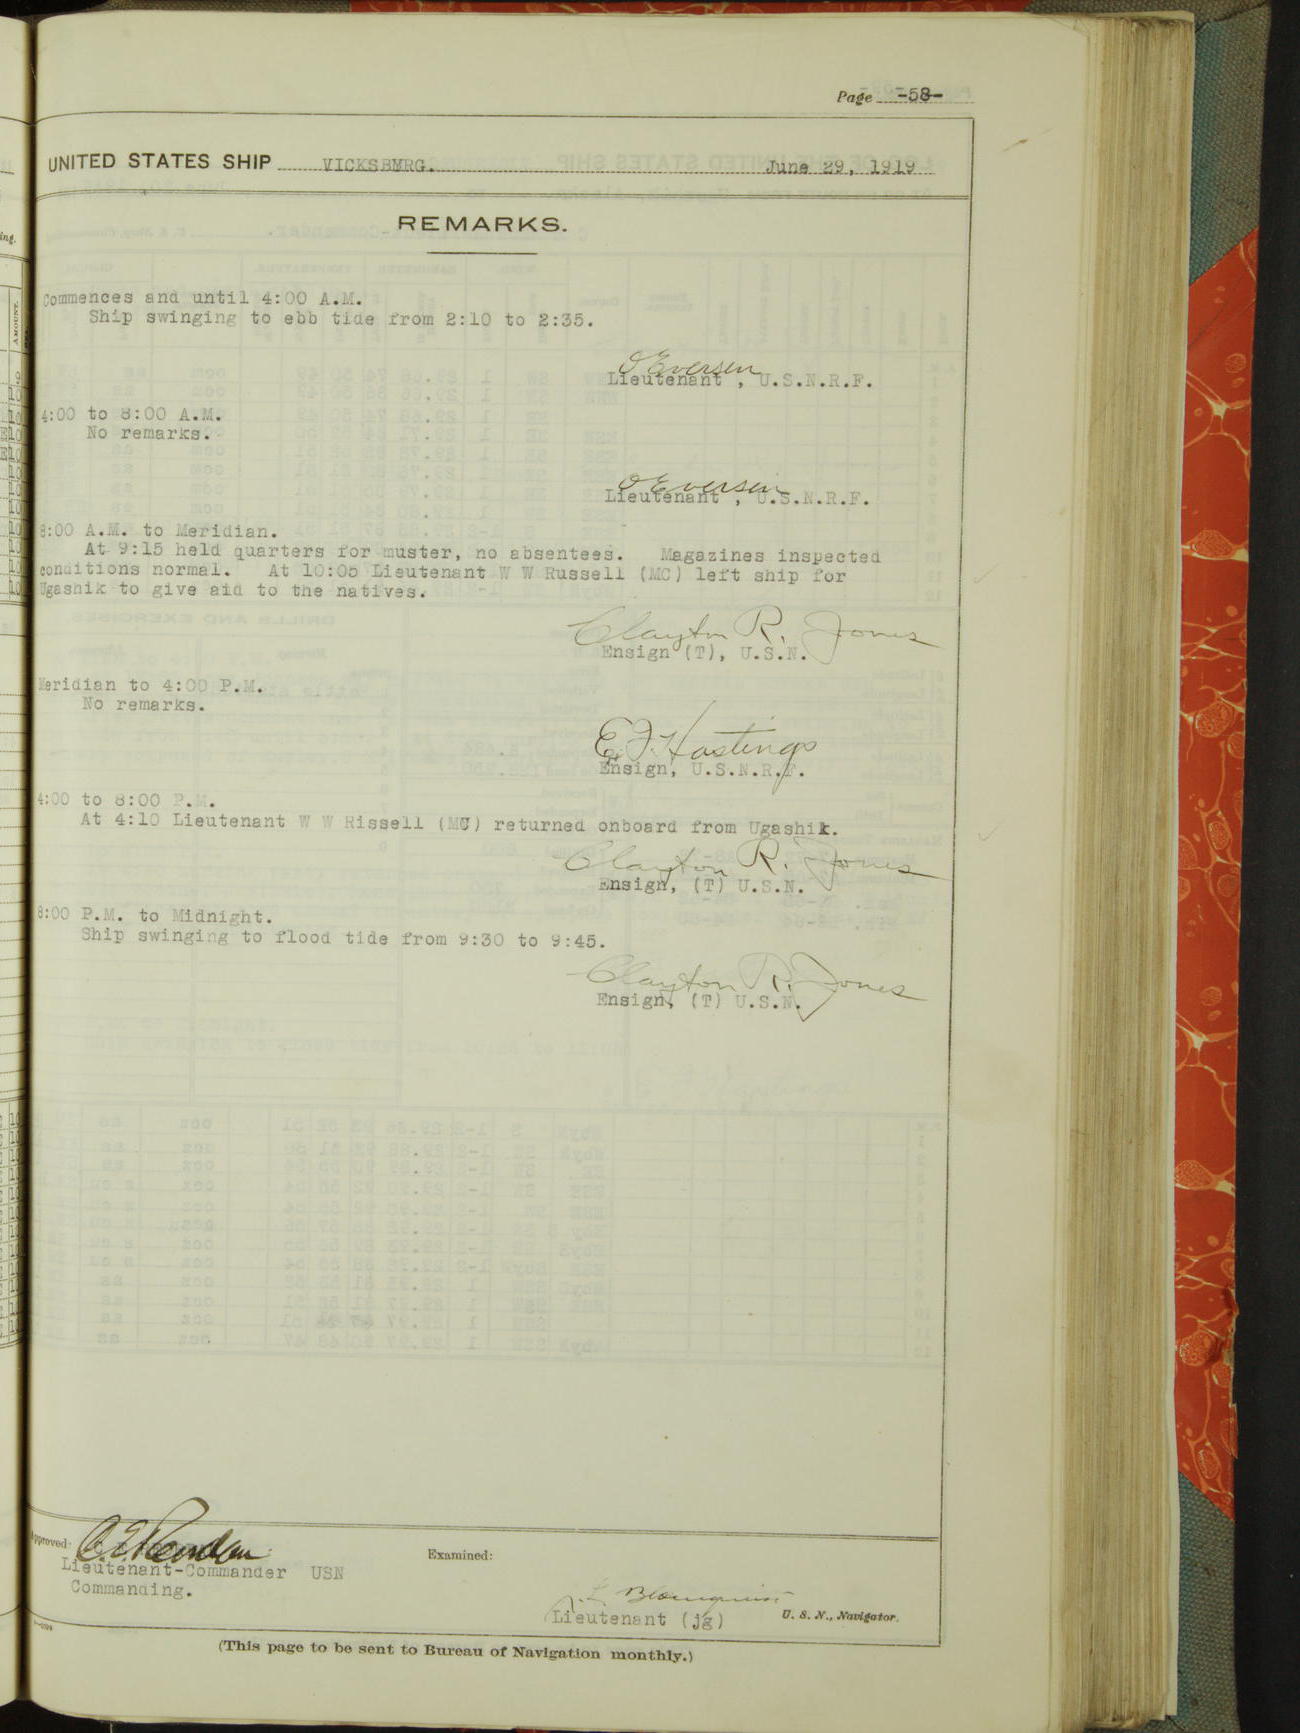 Page -58-
UNITED STATES SHIP VICKSBURG. June 29, 1919
REMARKS.
Commences and until 4:00 A.M.
Ship swinging to ebb tide from 2:10 to 2:35.
O Eversen
Lieutenant, U.S.N.R.F.
4:00 to 8:00 A.M.
No remarks.
O Eversen
Lieutenant, U.S.N.R.F.
8:00 A.M. to Meridian.
At 9:15 held quarters for muster, no absentees. Magazines inspected
conditions normal. At 10:05 Lieutenant W W Russell (MC) left ship for
Ugashik to give aid to the natives.
Clayton R. Jones
Ensign (T), U.S.N.
Meridian to 4:00 P.M.
No remarks.
E. F. Hastings
Ensign, U.S.N.R.F.
4:00 to 8:00 P.M.
At 4:10 Lieutenant W W Rissell (MC) returned onboard from Ugashik.
Clayton R. Jones
Ensign, (T) U.S.N.
8:00 P.M. to Midnight.
Ship swinging to flood tide from 9:30 to 9:45.
Clayton R. Jones
Ensign, (T) U.S.N.
Approved:
Lieutenant-Commander USN
Commanding.
Examined:
Blomquist
Lieutenant (jg) U. S. N., Navigator.
(This page to be sent to Bureau of Navigation monthly.)